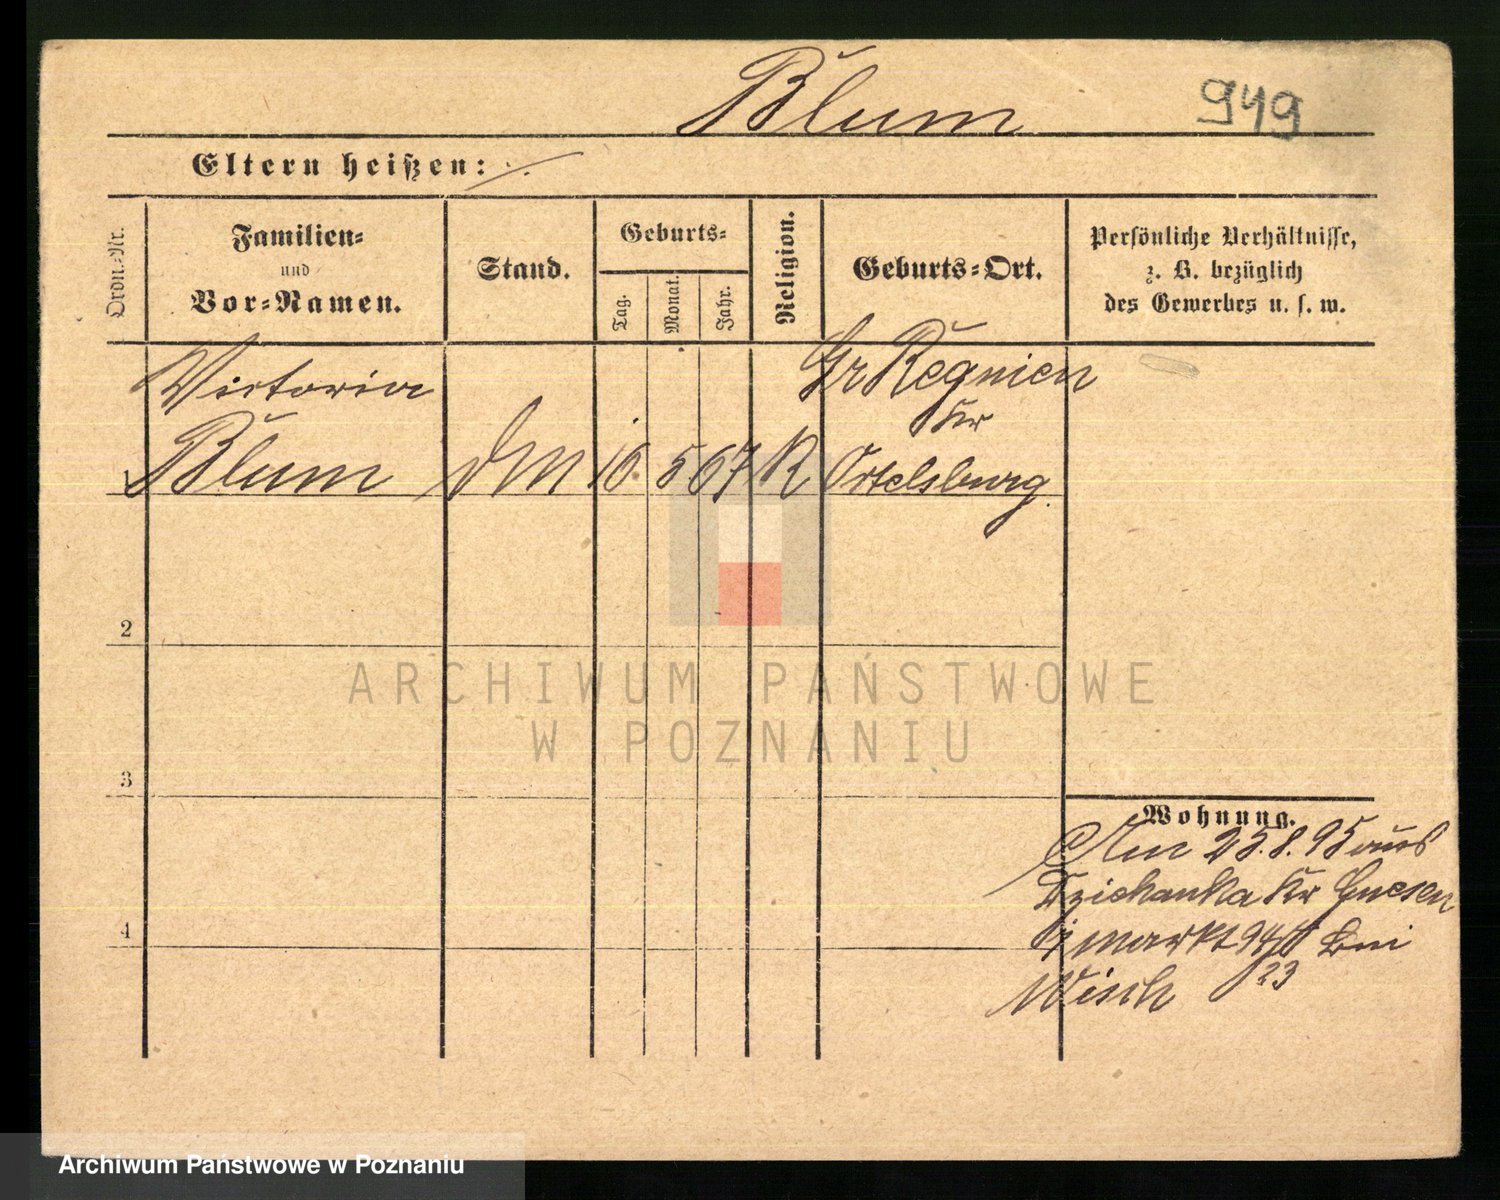 Blum
949
Eltern heißen: ./.
Ordn.-Nr.
Familien-
und
Vor-Namen.
Stand.
Geburts-
Tag.
Monat.
Jahr.
Religion.
Geburts-Ort.
Persönliche Verhältnisse,
z. B. bezüglich
des Gewerbes u. s. w.
Victoria
Gr Regnien
Kr
1 Blum DM 16. 5 67 K Ortelsburg.
2
3
4
Wohnung.
Am 25.8.95 aus
Dziekanka Kr Gnesen
markt 94 bei
Wisch 23
ARCHIWUM PAŃSTWOWE
W POZNANIU
Archiwum Państwowe w Poznaniu